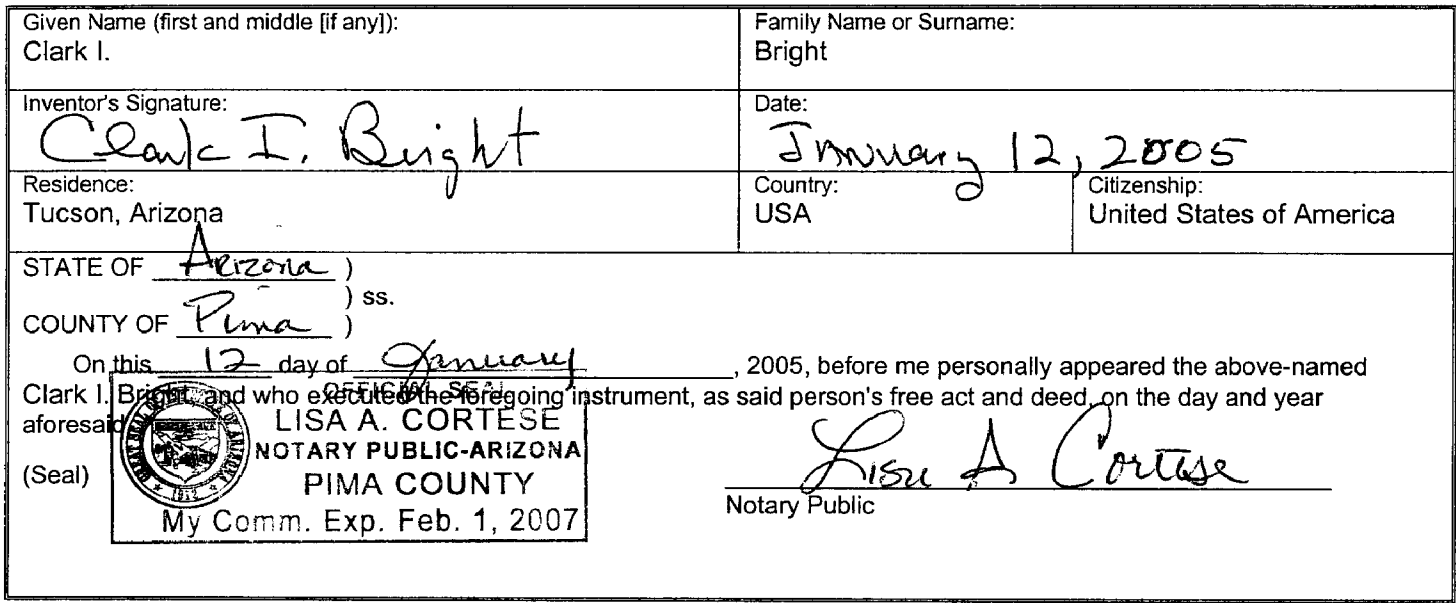 Given Name (first and middle [if any]):
Clark I.
Family Name or Surname:
Bright
Inventor's Signature:
Clark I. Bright
Date:
January 12, 2005
Residence:
Tucson, Arizona
Country:
USA
Citizenship:
United States of America
STATE OF Arizona )
) ss.
COUNTY OF Pima )
On this 12 day of January, 2005, before me personally appeared the above-named
Clark I. Bright, and who executed the foregoing instrument, as said person's free act and deed, on the day and year
aforesaid
(Seal)
OFFICIAL SEAL
LISA A. CORTESE
NOTARY PUBLIC-ARIZONA
PIMA COUNTY
My Comm. Exp. Feb. 1, 2007
1912
Lisa A Cortese
Notary Public